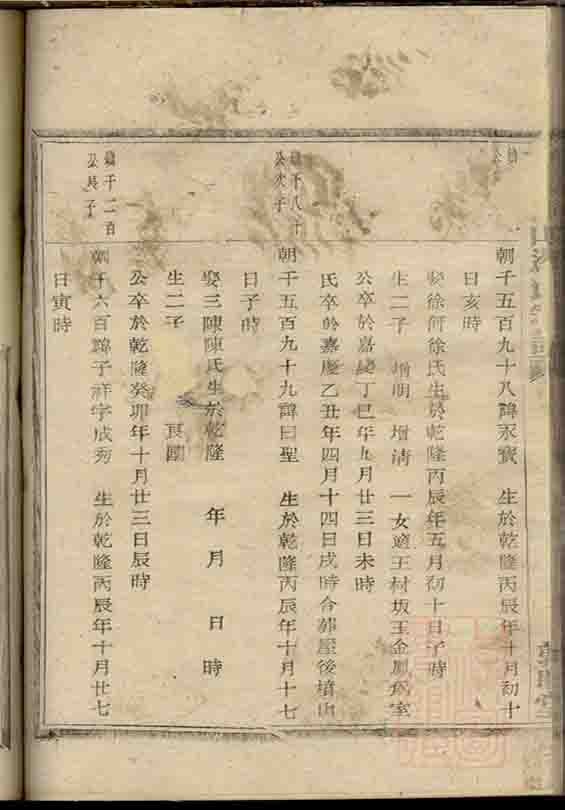 朝千五百九十八諱永寶　生於乾隆丙辰年十月初十
日亥時
娶徐何徐氏生於乾隆丙辰年五月初十日子時
生二子　增明　增清　一女適王村坂王金鳳為室
公卒於嘉慶丁巳年九月廿三日未時
氏卒於嘉慶乙丑年四月十四日戌時合葬屋後墙山
千八十
公次子
朝千五百九十九諱曰聖　生於乾隆丙辰年十月十七
日子時
娶三陳陳氏生於乾隆　年　月　日　時
生二子　艮
公卒於乾隆癸卯年十月廿三日辰時
千二百
公長子
朝千六百諱子祥字成秀　生於乾隆丙辰年十月廿七
日寅時